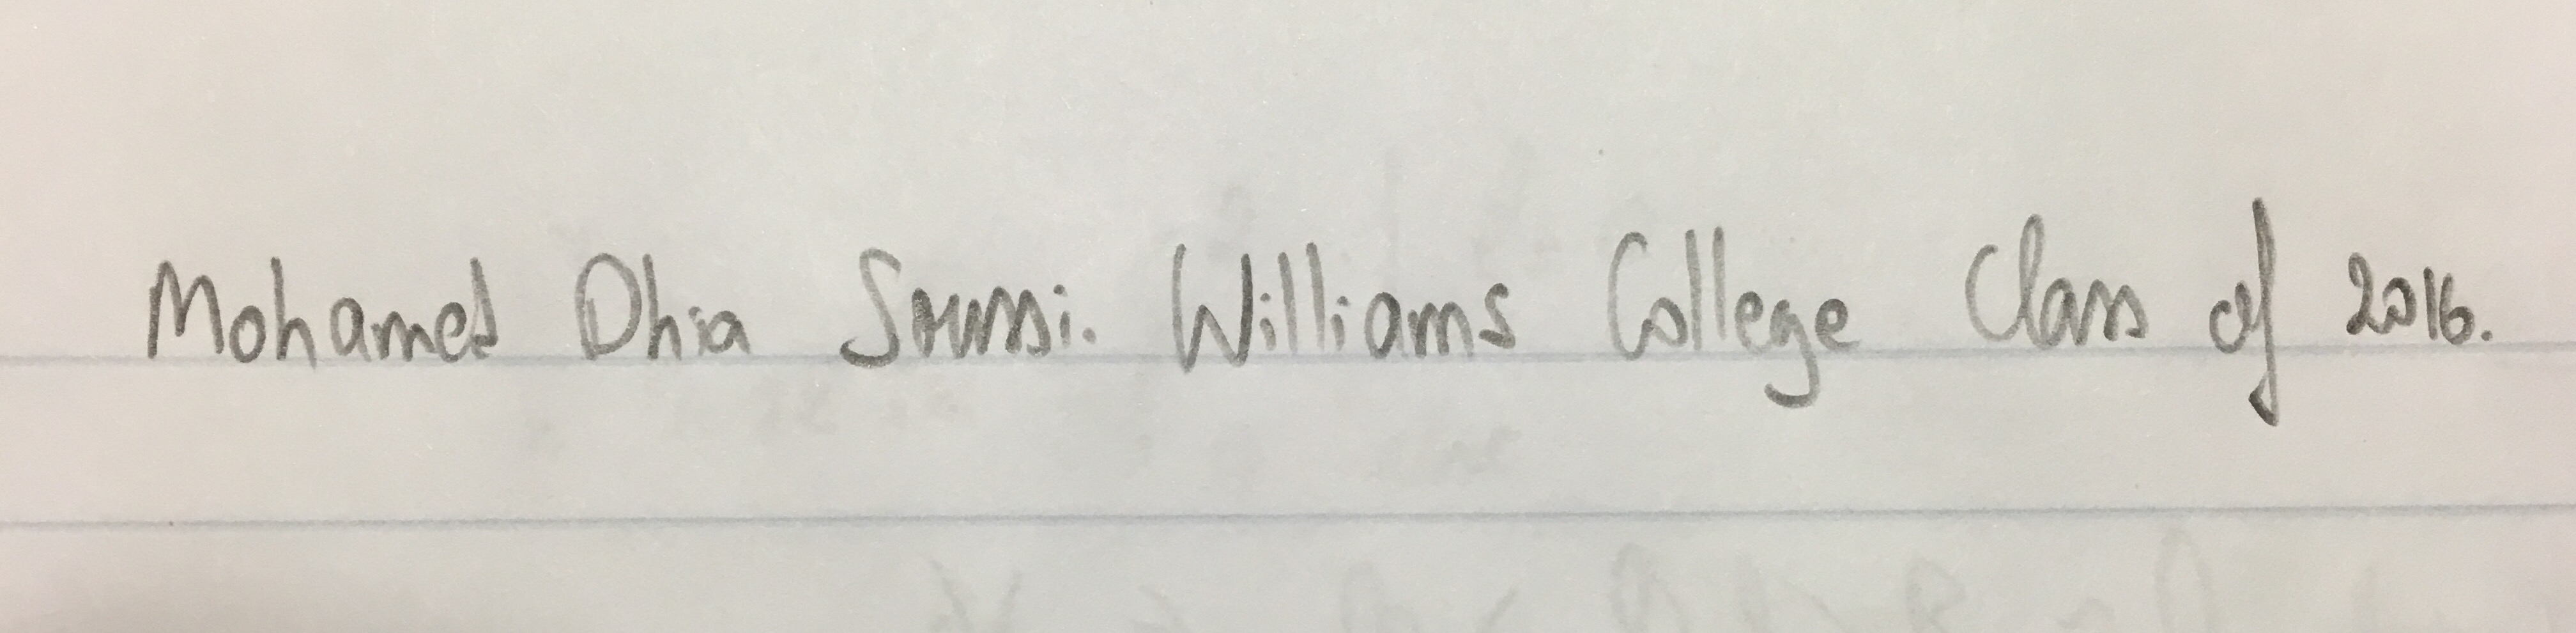 Mohamed Dhia Soussi. Williams College Class of 2016.